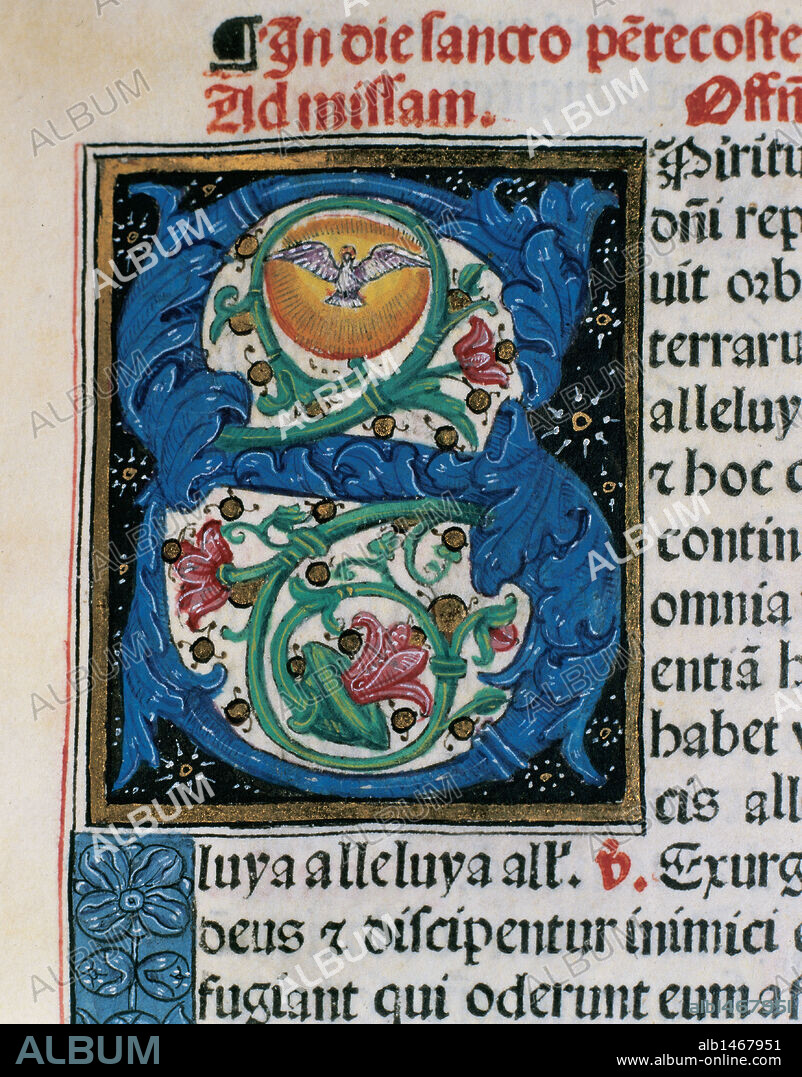 ¶In die sancto pētecoste
Ad missam. Offm̄
Spiritu
dn̄i rep
uit orb
terraru
alleluy
⁊ hoc c
contin
omnia
entiā h
habet v
cis all
luya alleluya all'. V. Exurg
deus ⁊ discipentur inimici e
fugiant qui oderunt eum a f
ALBUM
alb1467951
www.album-online.com